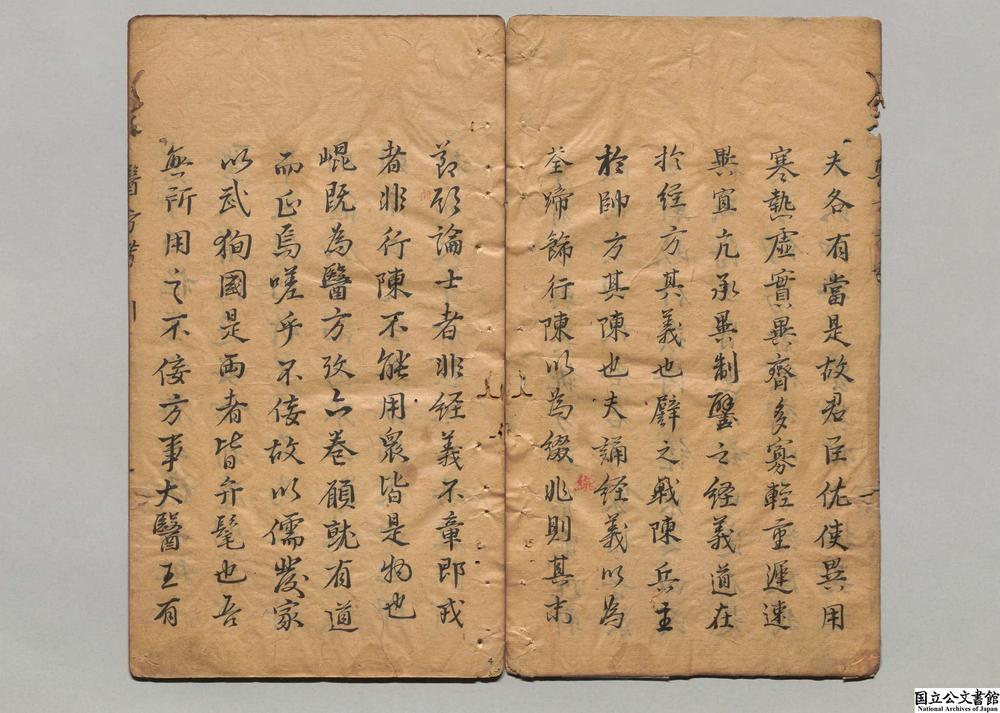 夫各有當是故君臣佐使異用
寒熱虛實異齊多寡輕重遲速
異宜亢承異制譬之經義道在
於經方其義也譬之戰陳兵主
於帥方其陳也夫誦經義以為
荃蹄飾行陳以為綴兆則其末
節耳論士者非經義不章即戎
者非行陳不能用衆皆是物也
崐既為醫方攷六卷願就有道
而正焉嗟乎不佞故以儒發家
以武狥國是兩者皆弁髦也吾
無所用之不佞方事大醫王有
醫方考
國立公文書館
National Archives of Japan